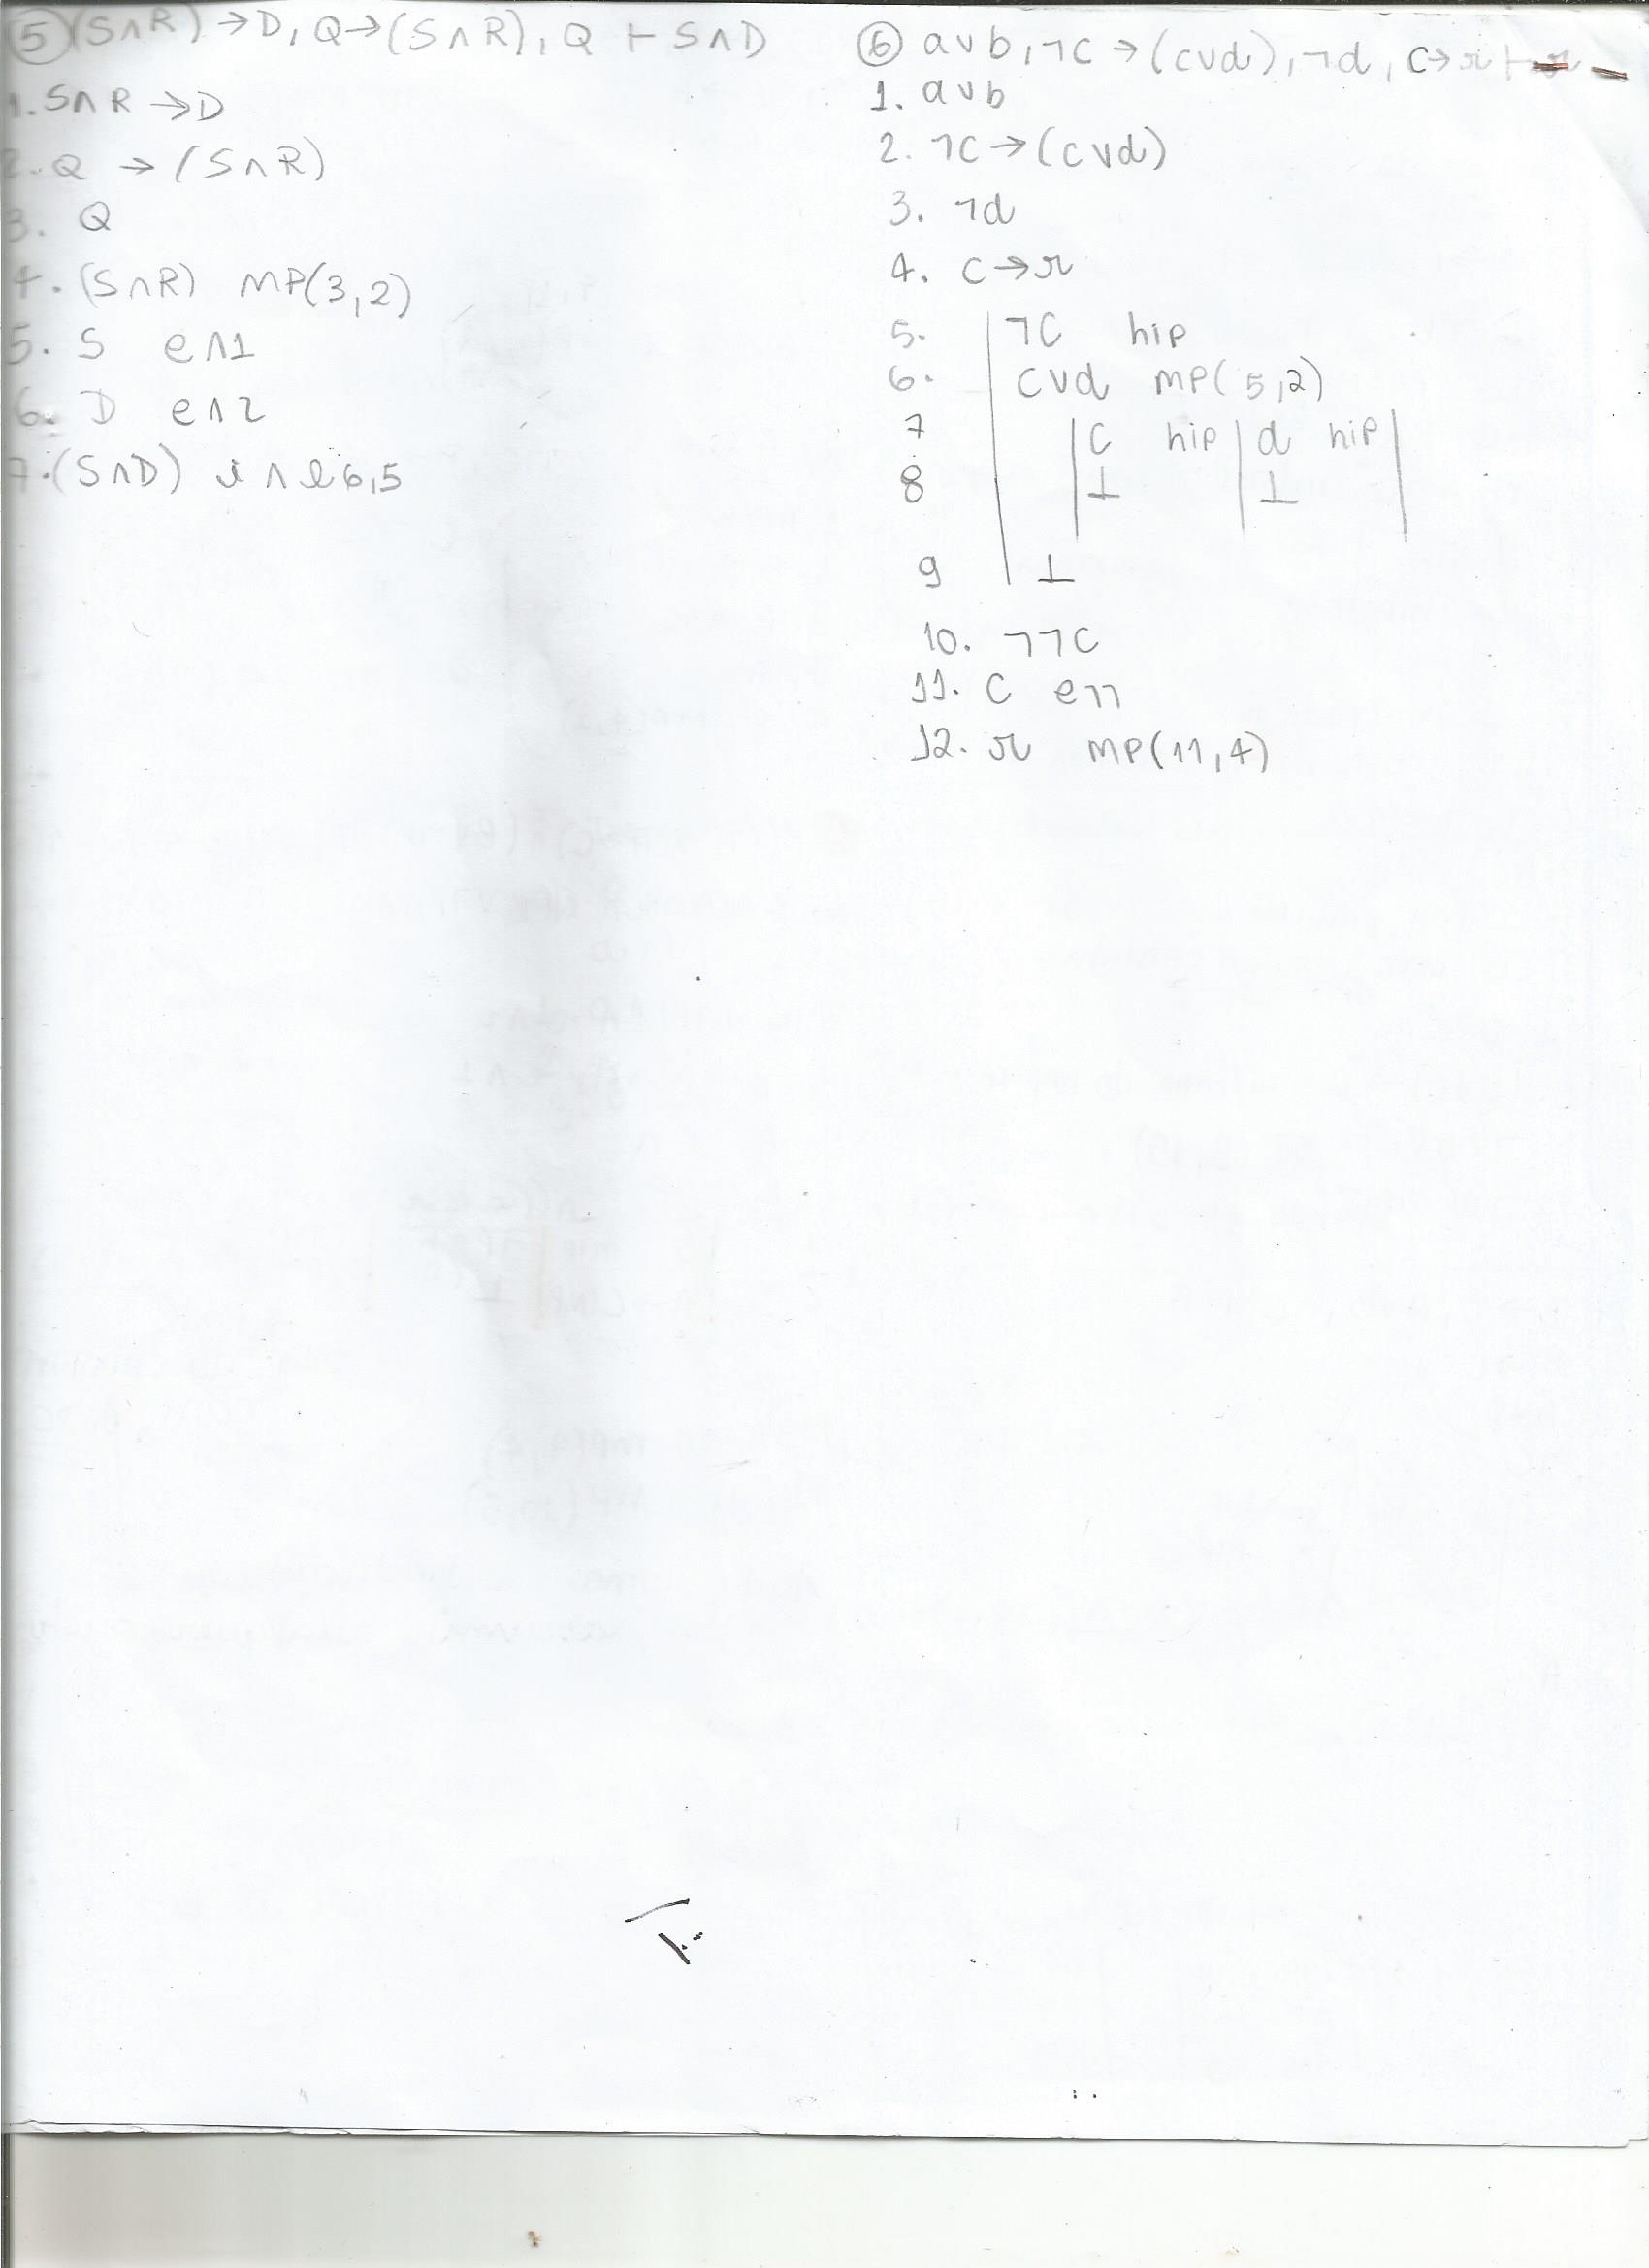 ⑤ (S∧R) → D, Q → (S∧R), Q ⊢ S∧D
1. S∧R → D
2. Q → (S∧R)
3. Q
4. (S∧R) MP(3,2)
5. S e∧1
6. D e∧2
7. (S∧D) i∧ 6,5
⑥ a∨b, ¬C → (c∨d), ¬d, C→r ⊢
1. a∨b
2. ¬C → (c∨d)
3. ¬d
4. C→r
5. ¬C hip
6. C∨d MP(5,2)
7 C hip d hip
8 ⊥ ⊥
9 ⊥
10. ¬¬C
11. C e¬¬
12. r MP(11,4)